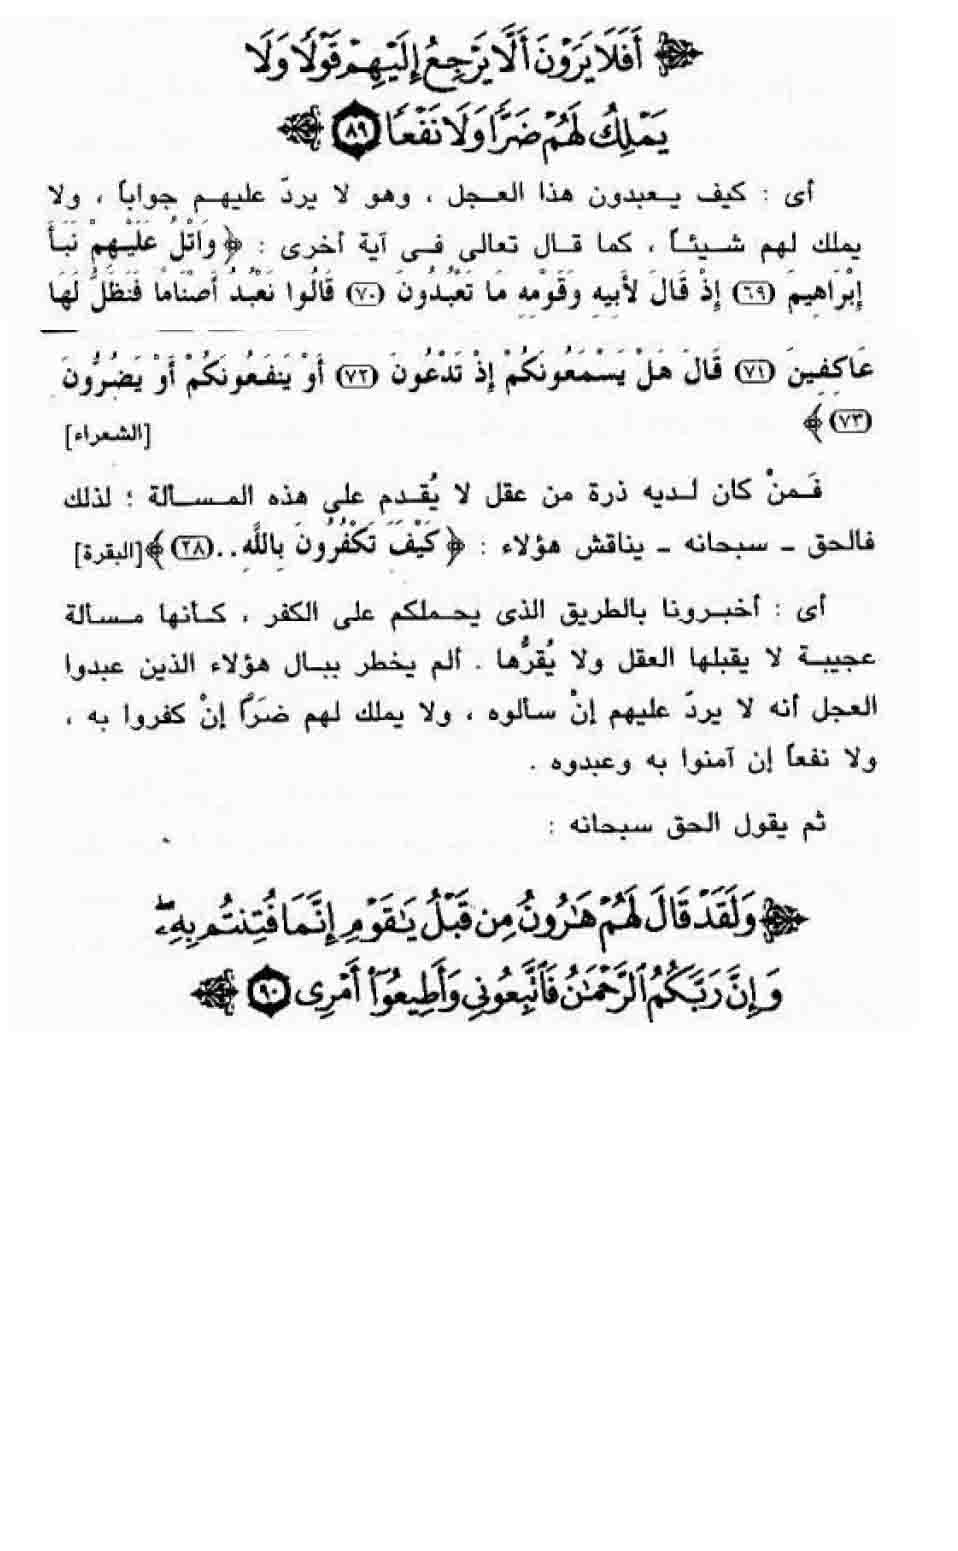 ﴿ أَفَلَا يَرَوْنَ أَلَّا يَرْجِعُ إِلَيْهِمْ قَوْلًا وَلَا
يَمْلِكُ لَهُمْ ضَرًّا وَلَا نَفْعًا ٨٩ ﴾
أى : كيف يعبدون هذا العجل ، وهو لا يردّ عليهم جواباً ، ولا
يملك لهم شيئاً ، كما قال تعالى فى آية أخرى : ﴿ وَاتْلُ عَلَيْهِمْ نَبَأَ
إِبْرَاهِيمَ (٦٩) إِذْ قَالَ لأَبِيهِ وَقَوْمِهِ مَا تَعْبُدُونَ (٧٠) قَالُوا نَعْبُدُ أَصْنَامًا فَنَظَلُّ لَهَا
عَاكِفِينَ (٧١) قَالَ هَلْ يَسْمَعُونَكُمْ إِذْ تَدْعُونَ (٧٢) أَوْ يَنفَعُونَكُمْ أَوْ يَضُرُّونَ
(٧٣) ﴾ [الشعراء]
فَمنْ كان لديه ذرة من عقل لا يُقدم على هذه المسألة ؛ لذلك
فالحق - سبحانه - يناقش هؤلاء : ﴿ كَيْفَ تَكْفُرُونَ بِاللَّهِ .. (٢٨) ﴾ [البقرة]
أى : أخبرونا بالطريق الذى يحملكم على الكفر ، كأنها مسألة
عجيبة لا يقبلها العقل ولا يُقرُّها . ألم يخطر ببال هؤلاء الذين عبدوا
العجل أنه لا يردّ عليهم إنْ سألوه ، ولا يملك لهم ضَرّاً إنْ كفروا به ،
ولا نفعاً إن آمنوا به وعبدوه .
ثم يقول الحق سبحانه :
﴿ وَلَقَدْ قَالَ لَهُمْ هَٰرُونُ مِن قَبْلُ يَٰقَوْمِ إِنَّمَا فُتِنتُم بِهِۦ
وَإِنَّ رَبَّكُمُ ٱلرَّحْمَٰنُ فَٱتَّبِعُونِى وَأَطِيعُوٓا۟ أَمْرِى ٩٠ ﴾